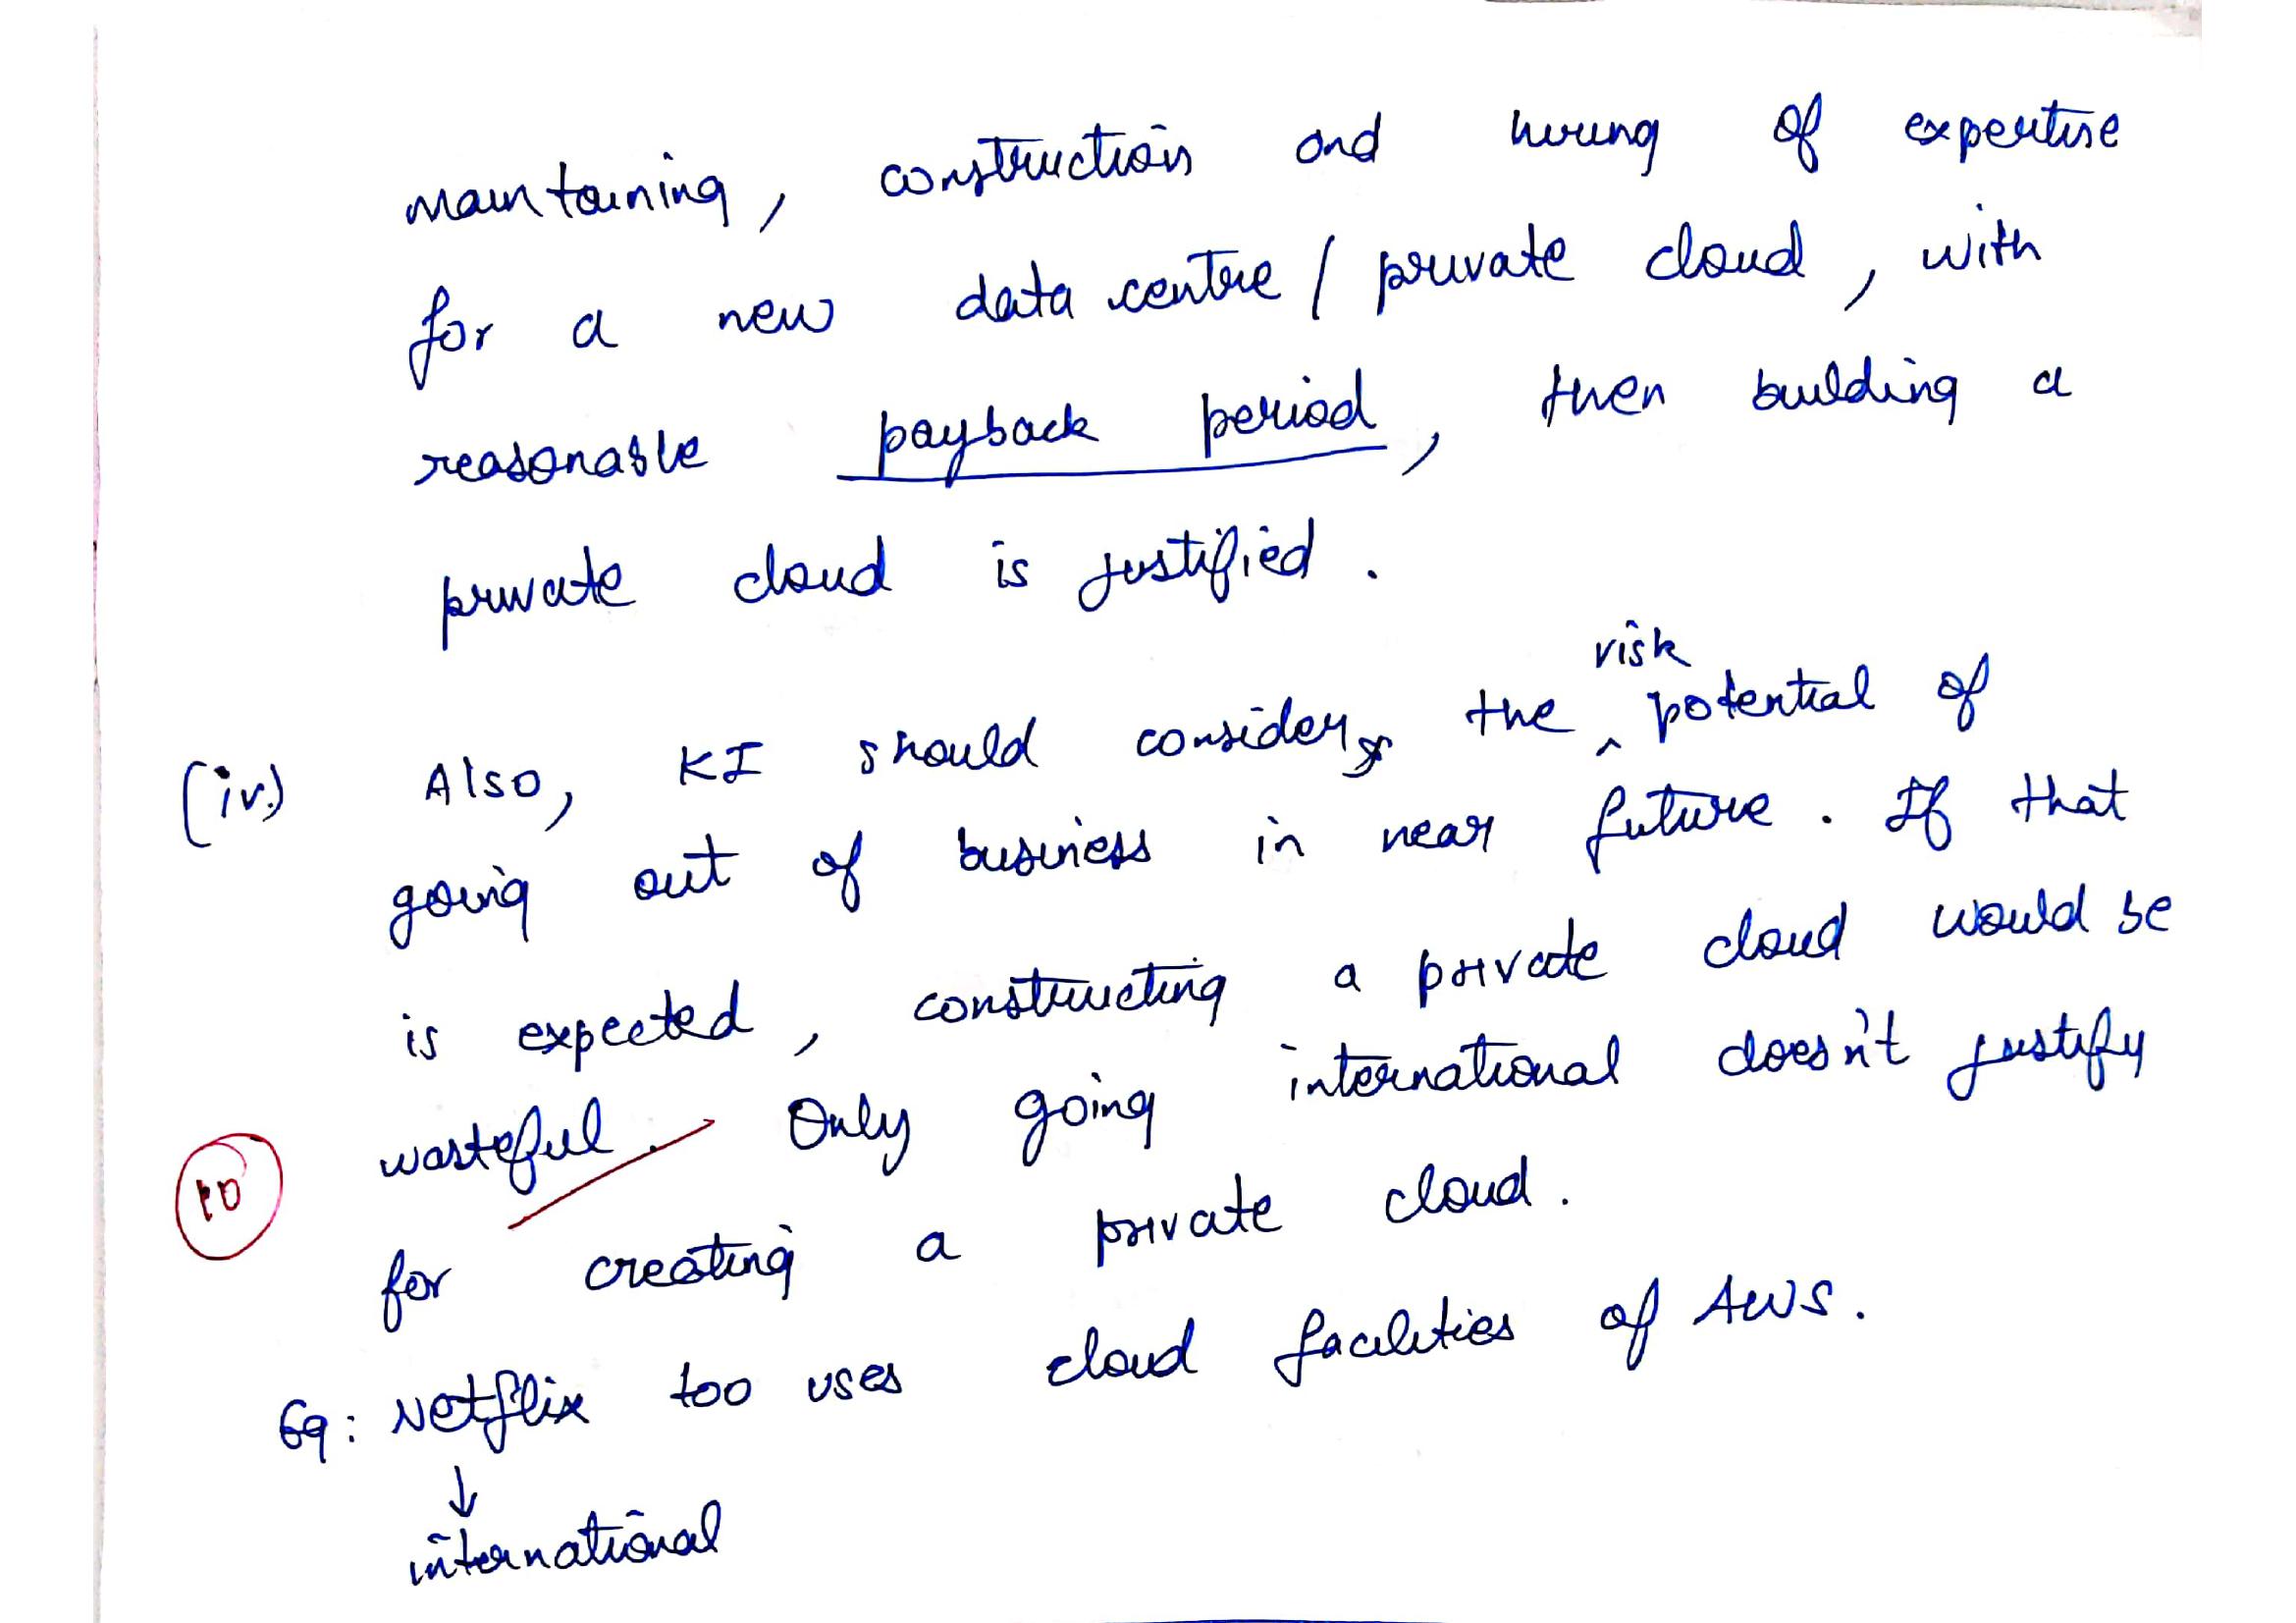 maintaining, construction and hiring of expertise
for a new data centre / private cloud, with
reasonable payback period, then building a
private cloud is justified.
risk
(iv.) Also, KI should consider the ^ potential of
going out of business in near future. If that
is expected, constructing a private cloud would be
wasteful. Only going international doesn't justify
10
for creating a private cloud.
Eg: Netflix too uses cloud facilities of AWS.
↓
international